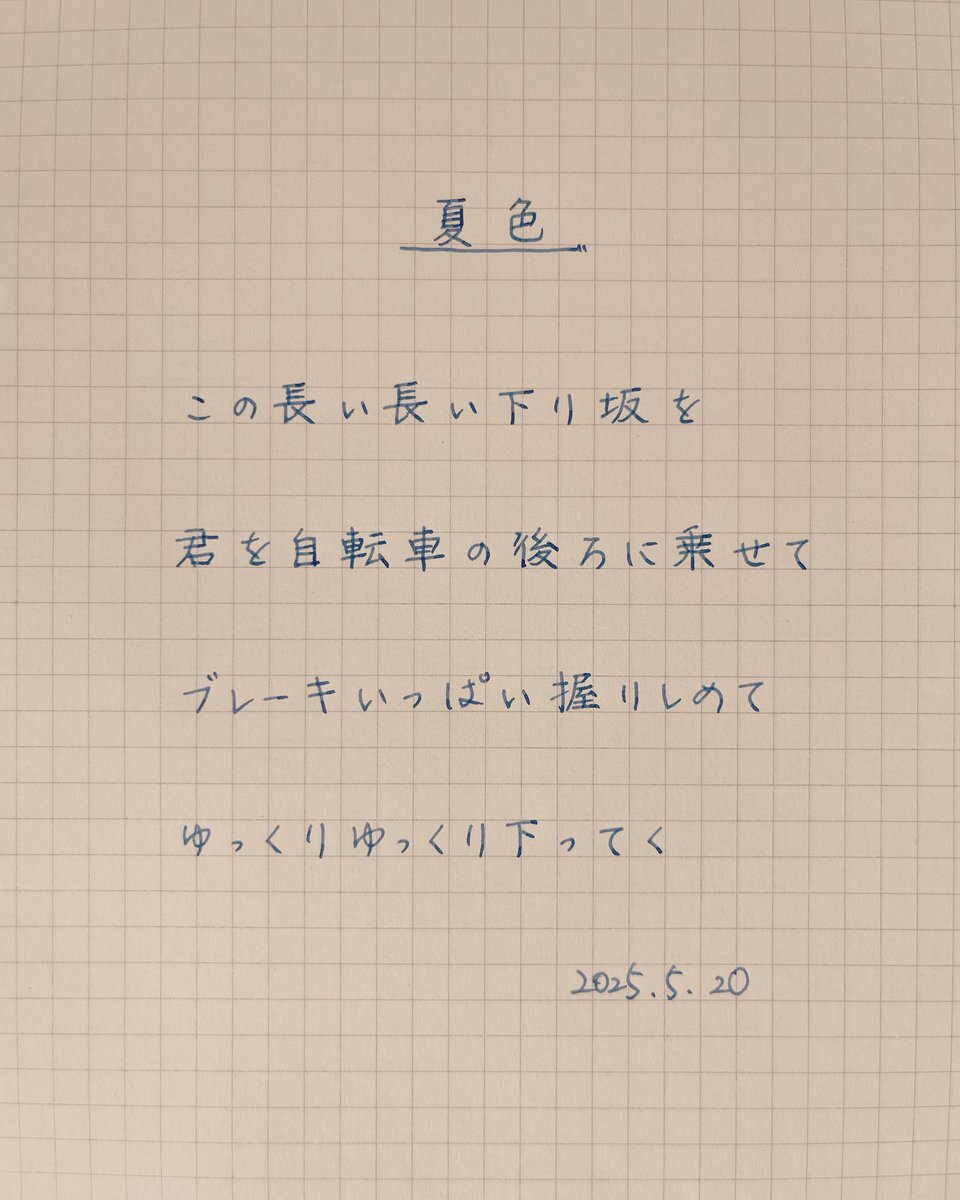 夏色
この長い長い下り坂を
君を自転車の後ろに乗せて
ブレーキいっぱい握りしめて
ゆっくりゆっくり下ってく
2025.5.20